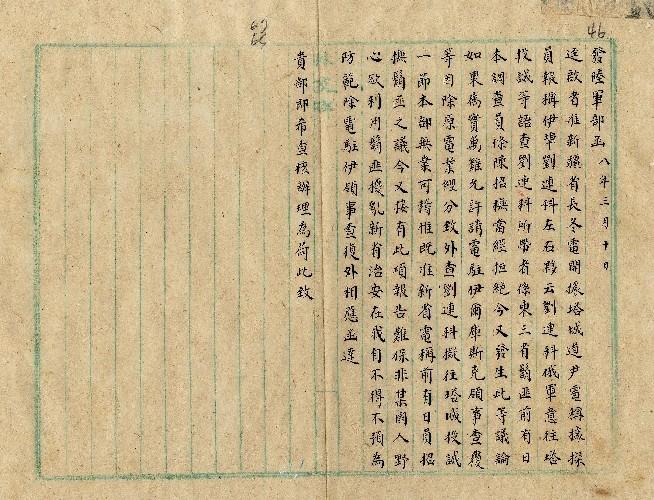 46
發陸軍部函 八年三月十日
逕啟者准新疆省長冬電開據塔城道尹電稱據探
員報稱伊犂劉連科左右夥云劉連科俄軍意往塔
投誠等語查劉連科所帶者係東三省鬍匪前有日
本調查員條陳招撫當經拒絕今又發生此等議論
如果為實萬難允許請電駐伊爾庫斯克領事查覆
等因除原電業經分致外查劉連科擬往塔城投誠
一節本部無案可稽惟既准新省電稱前有日員招
撫鬍匪之議今又接有此項報告難保非某國人野
心欲利用鬍匪擾亂新省治安在我自不得不預為
防範除電駐伊領事查復外相應函達
貴部即希查核辦理為荷此致